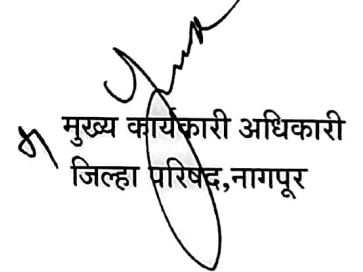 मुख्य कार्यकारी अधिकारी
जिल्हा परिषद,नागपूर